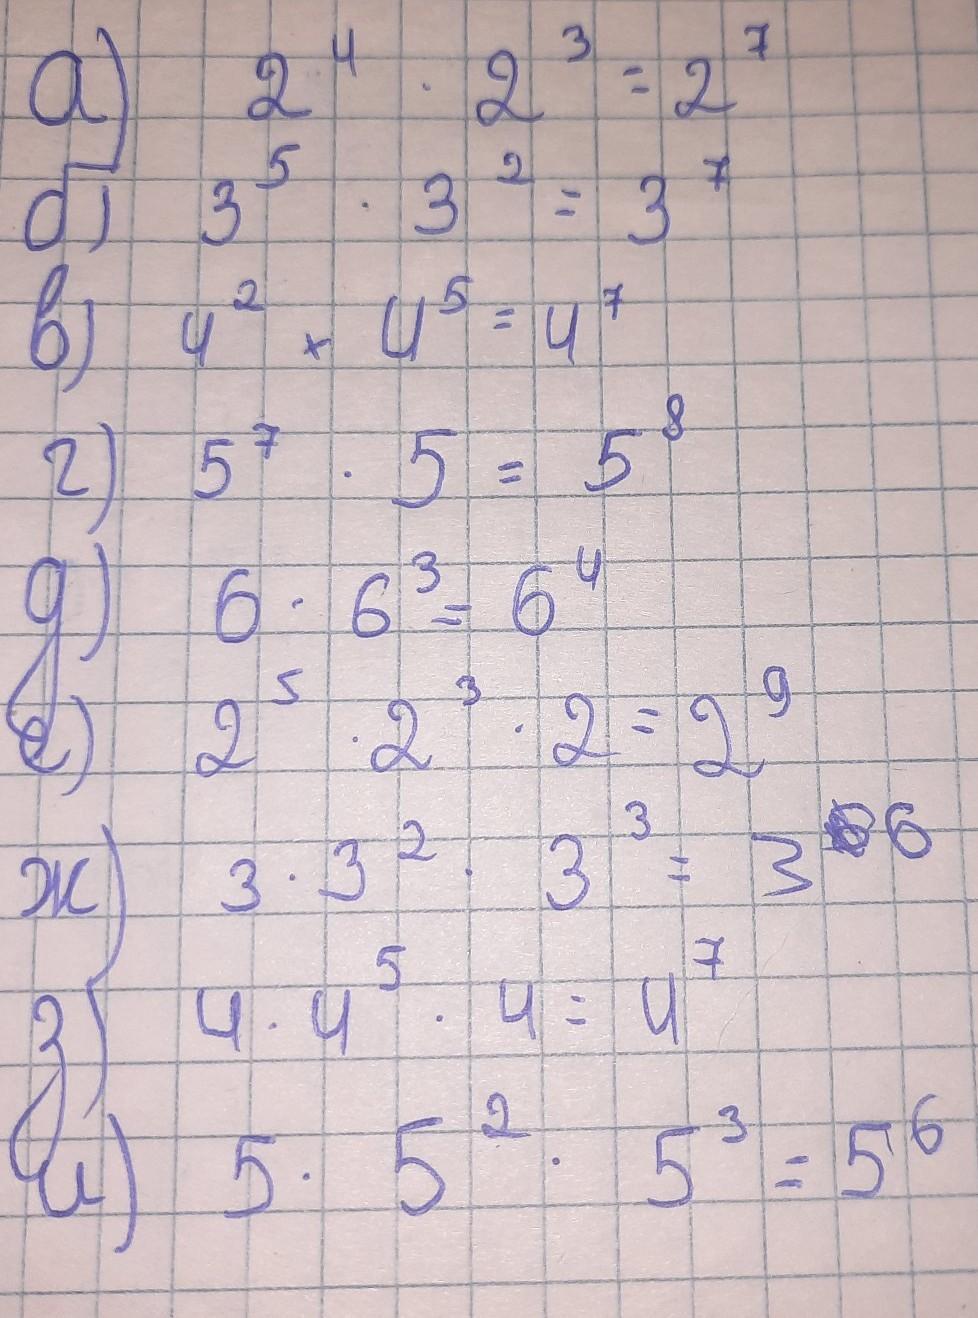 а) 2⁴ · 2³ = 2⁷
б) 3⁵ · 3² = 3⁷
в) 4² × 4⁵ = 4⁷
г) 5⁷ · 5 = 5⁸
д) 6 · 6³ = 6⁴
е) 2⁵ · 2³ · 2 = 2⁹
ж) 3 · 3² · 3³ = 3⁶
з) 4 · 4⁵ · 4 = 4⁷
и) 5 · 5² · 5³ = 5⁶